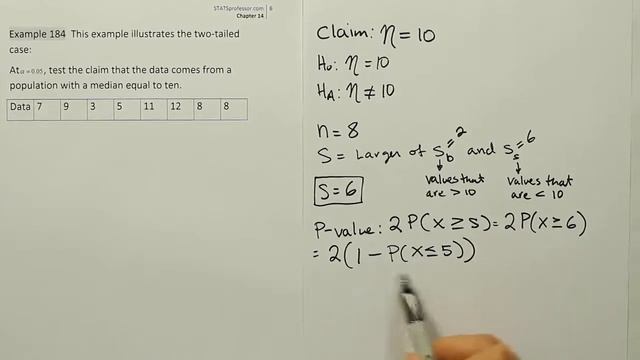 STATSprofessor.com 6
Chapter 14
Example 184 This example illustrates the two-tailed
case:
At α = 0.05, test the claim that the data comes from a
population with a median equal to ten.
Data 7 9 3 5 11 12 8 8
Claim: η = 10
H₀: η = 10
H_A: η ≠ 10
n = 8
S = Larger of S_b = 2 and S_s = 6
values that values that
are > 10 are < 10
S = 6
P-value: 2P(X ≥ S) = 2P(X ≥ 6)
= 2(1 − P(X ≤ 5))